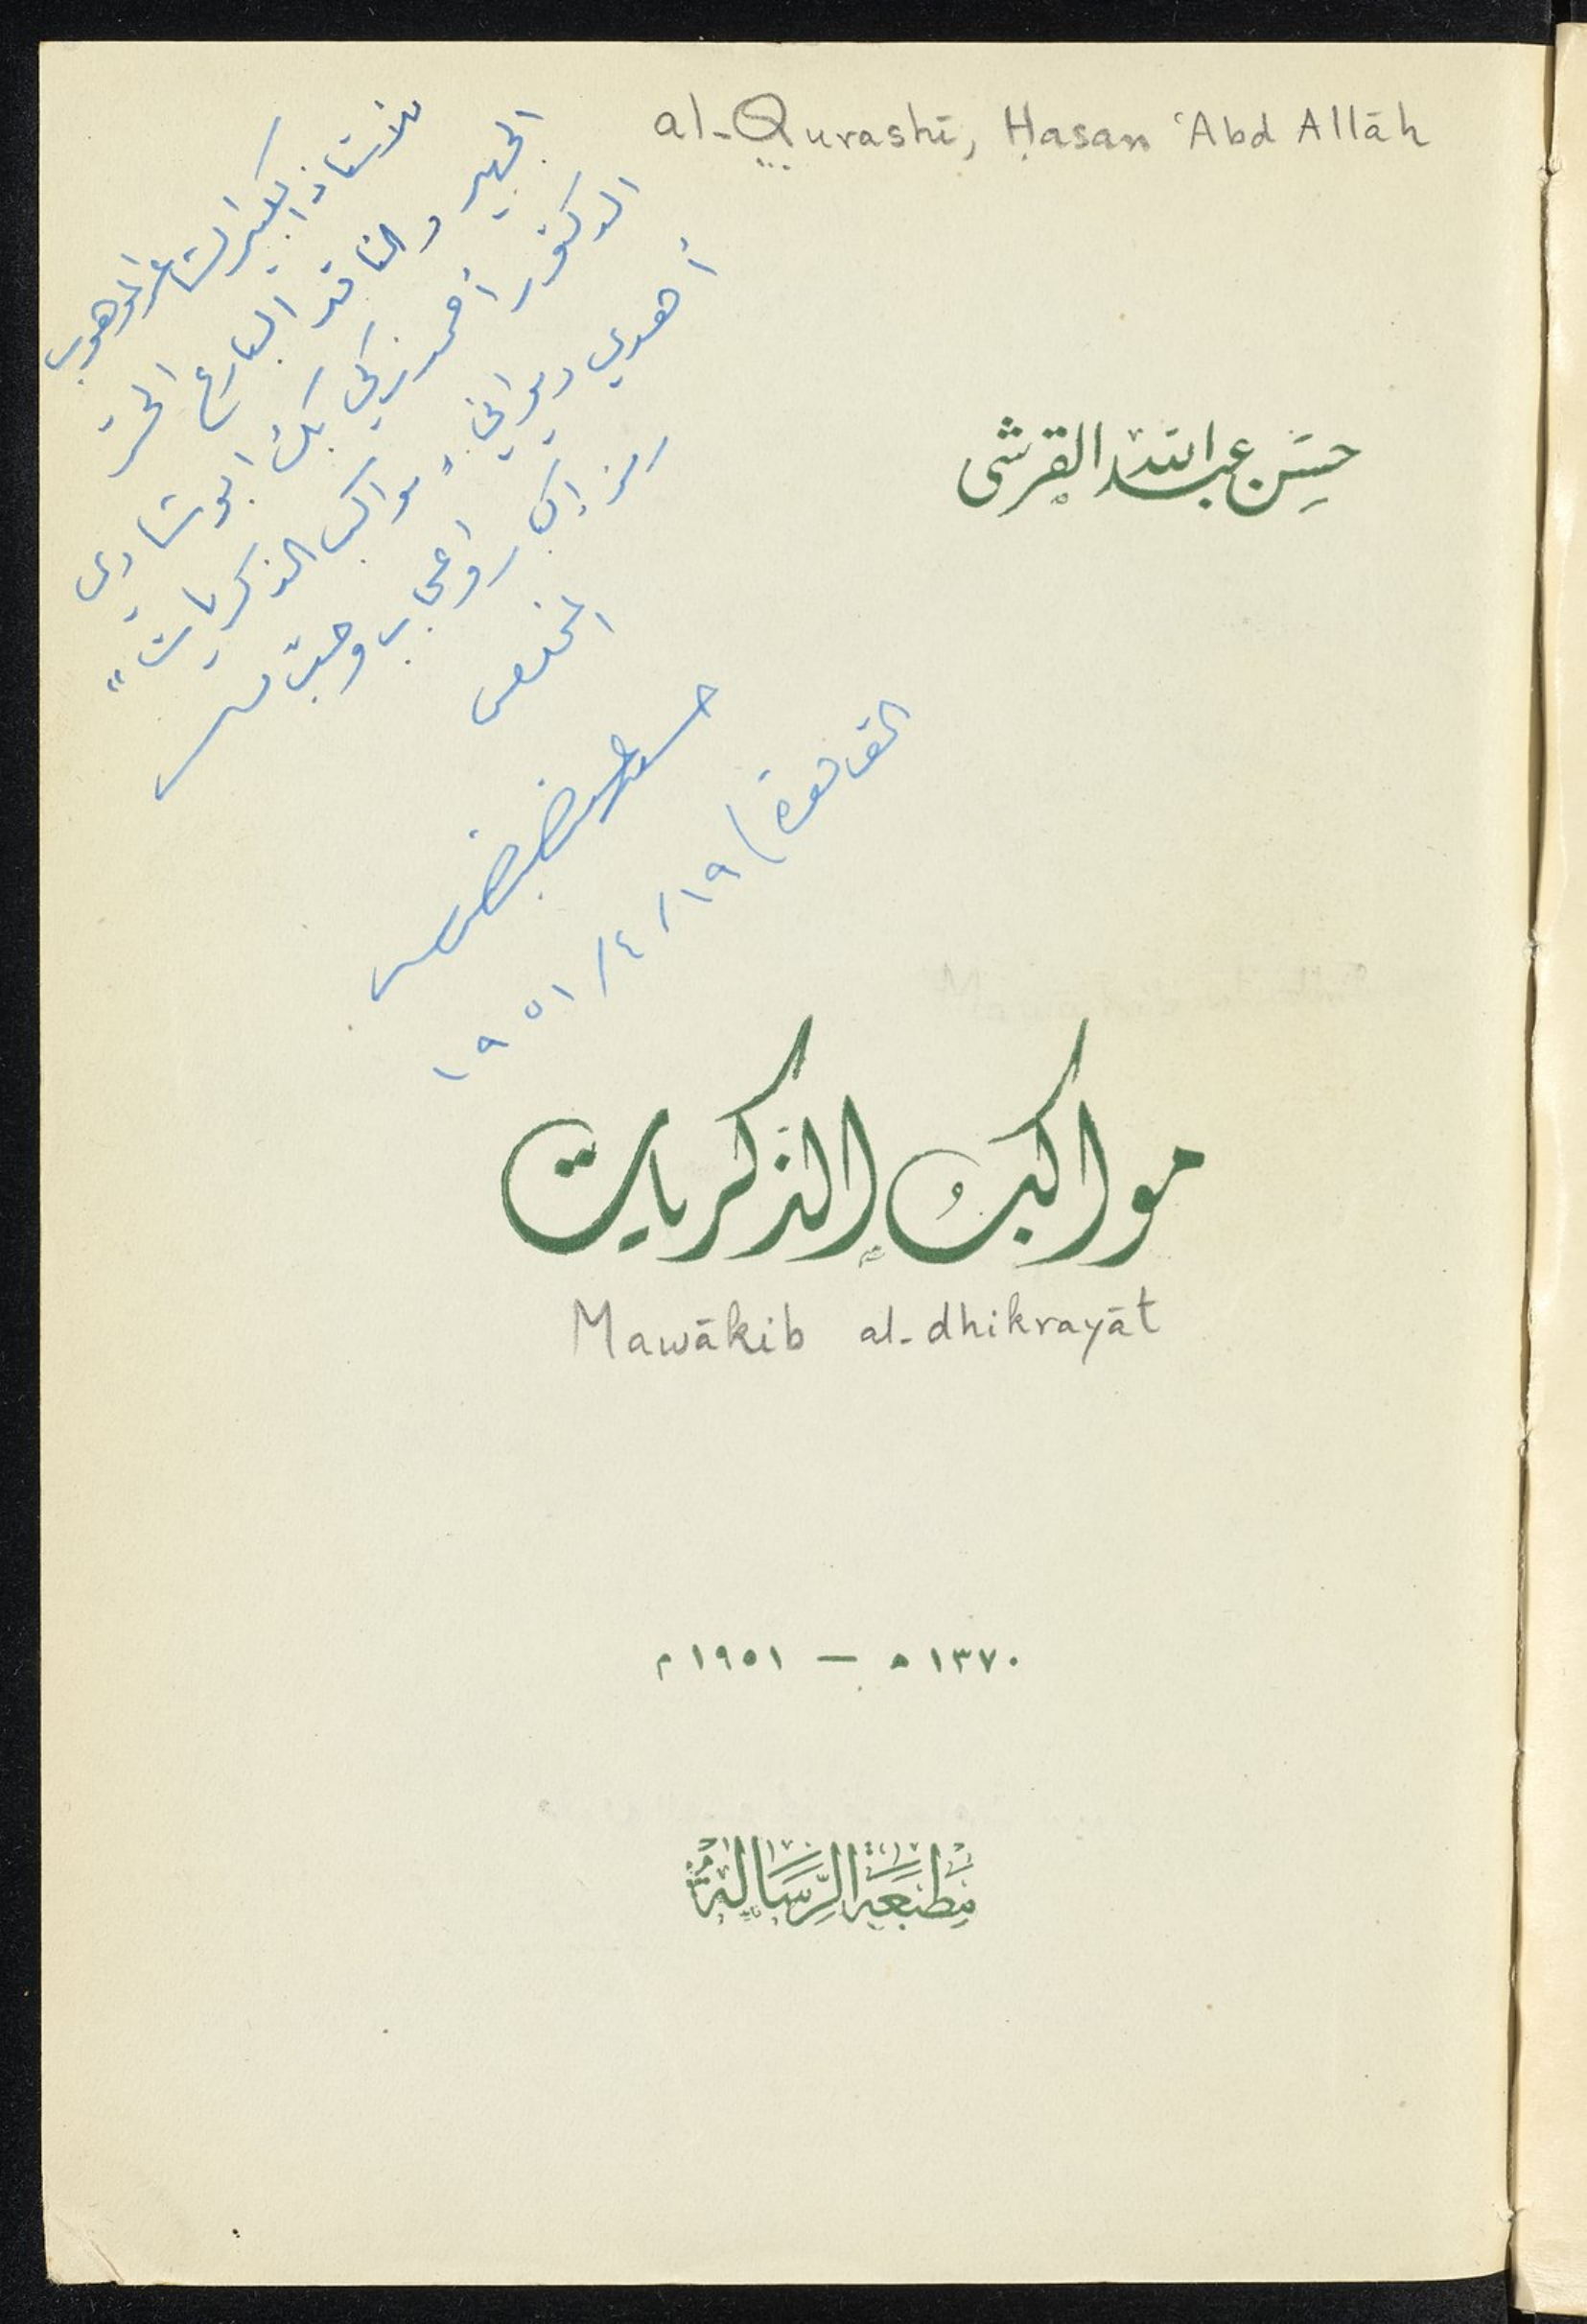 al-Qurashī, Ḥasan ʿAbd Allāh
للأستاذ الكبير الشاعر الموهوب
الجهير والناقد البارع الحر
الدكتور أحمد زكي بك أبو شادي
أهدي ديواني "مواكب الذكريات"
رمز إكبار وإعجاب وحب
المخلص
القاهرة ١٩/٤/١٩٥١
حسن عبد الله القرشى
مواكب الذكريات
Mawākib al-dhikrayāt
١٣٧٠ ه — ١٩٥١ م
مطبعة الرسالة